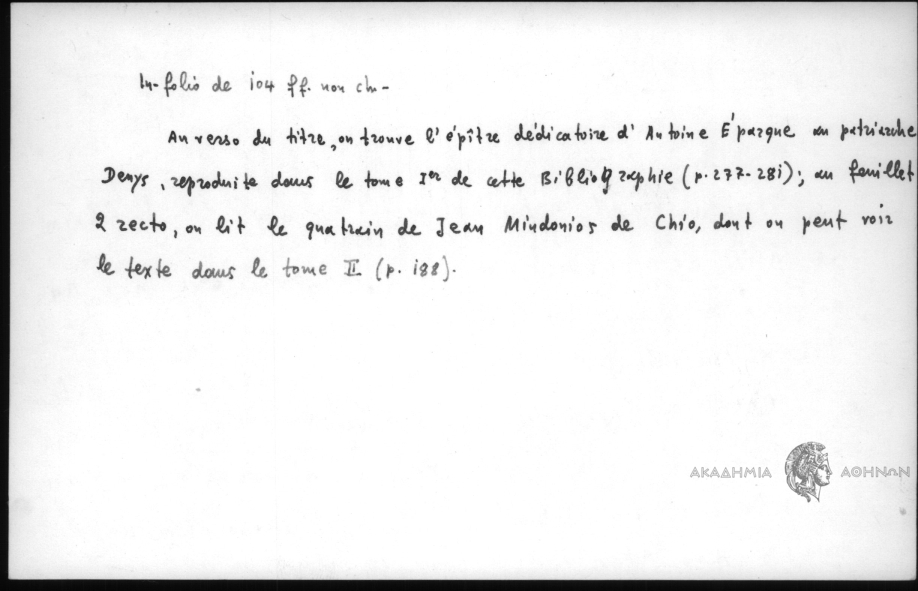 In-folio de 104 ff. non ch-
Au verso du titre, on trouve l'épître dédicatoire d'Antoine Éparque au patriarche
Denys, reproduite dans le tome Ier de cette Bibliographie (p. 277-281); au feuillet
2 recto, on lit le quatrain de Jean Mindonios de Chio, dont on peut voir
le texte dans le tome II (p. 188).
ΑΚΑΔΗΜΙΑ ΑΘΗΝΩΝ